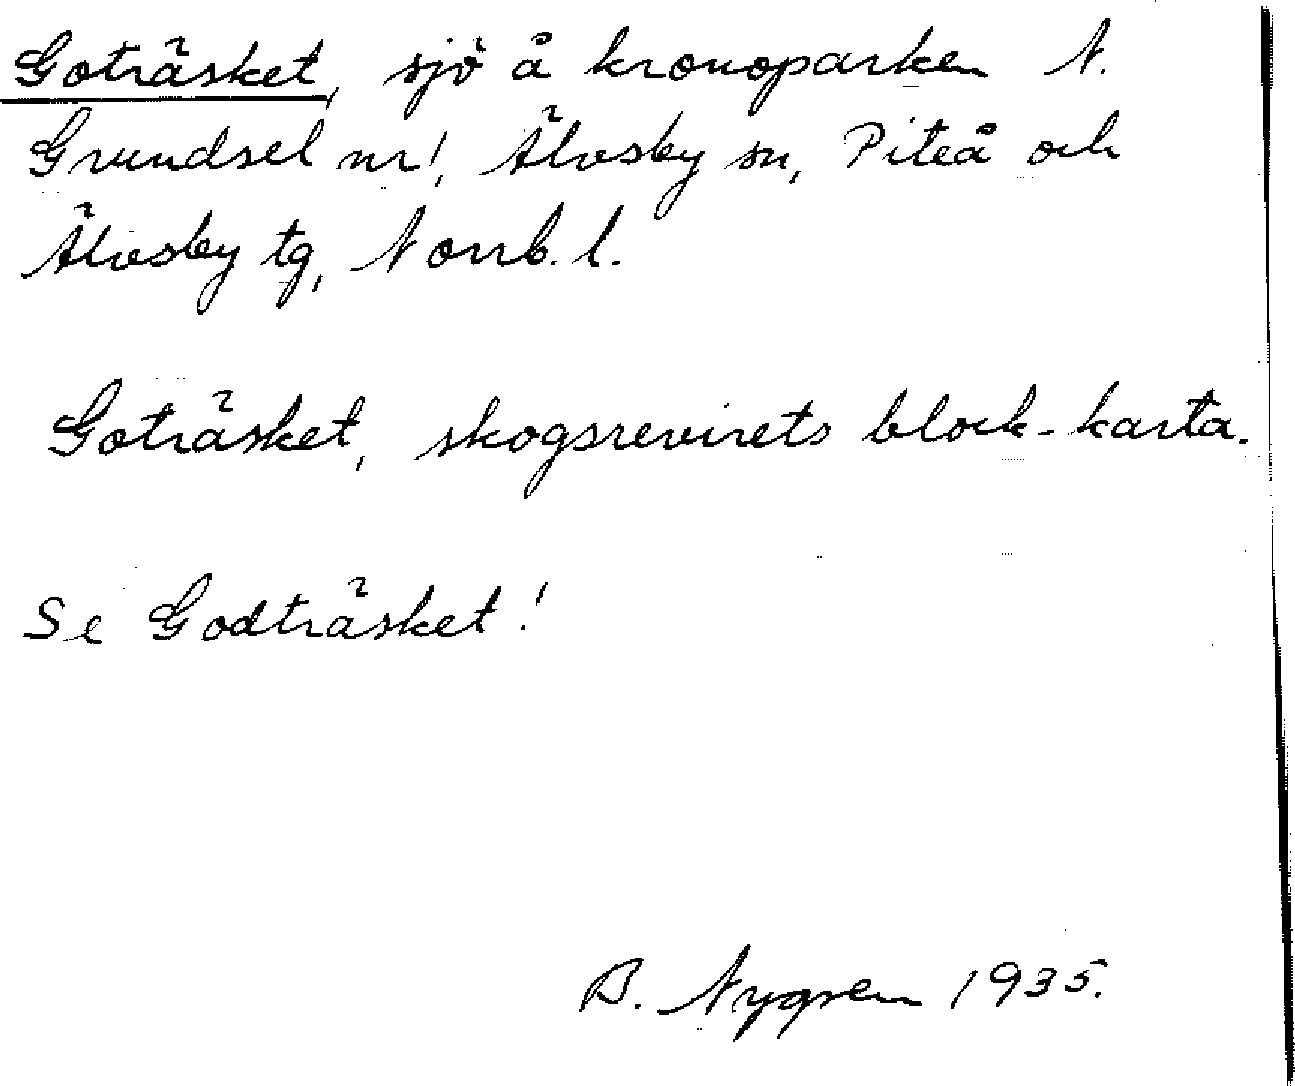 Goträsket, sjö å kronoparken N.
Grundsel nr 1, Älvsby sn, Piteå och
Älvsby tg, Norrb. l.
Goträsket, skogsrevirets block-karta.
Se Godträsket!
B. Nygren 1935.